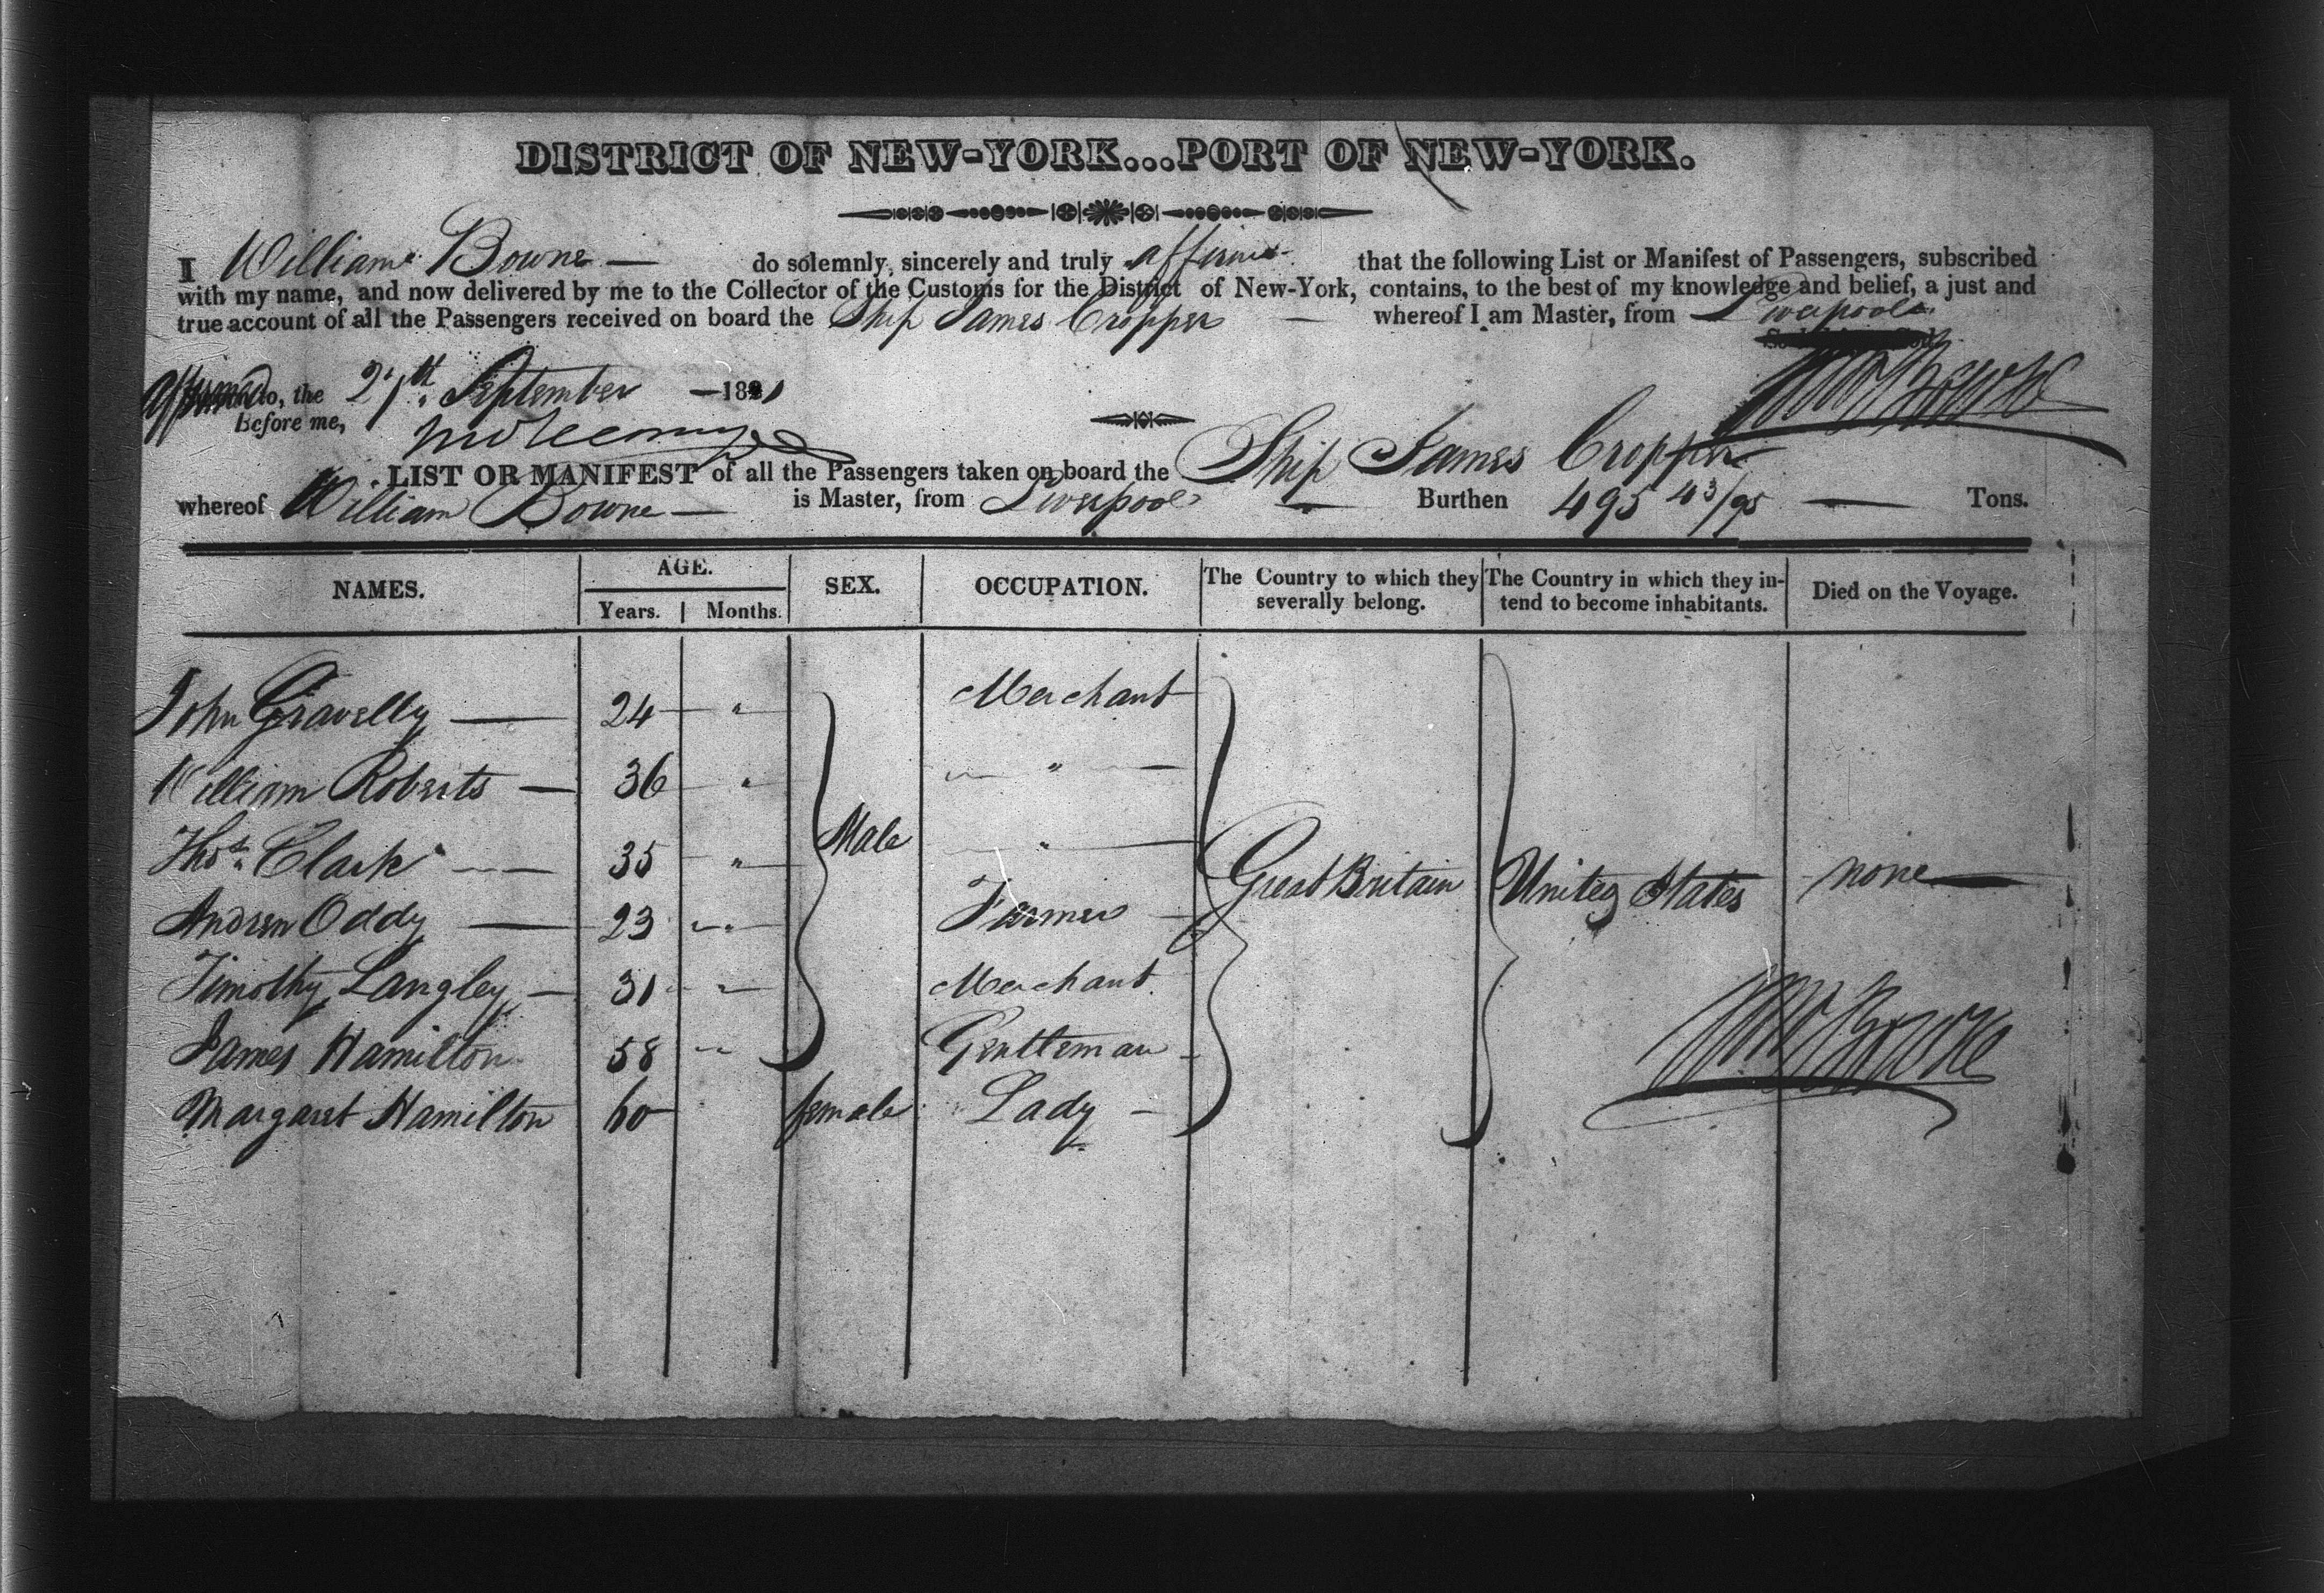 DISTRICT OF NEW-YORK...PORT OF NEW-YORK.
I William Bowne — do solemnly, sincerely and truly affirm that the following List or Manifest of Passengers, subscribed
with my name, and now delivered by me to the Collector of the Customs for the District of New-York, contains, to the best of my knowledge and belief, a just and
true account of all the Passengers received on board the Ship James Cropper — whereof I am Master, from Liverpool
Affirmed to, the 27th September — 1821 Wm Bowne
Before me,
LIST OR MANIFEST of all the Passengers taken on board the Ship James Cropper
whereof William Bowne — is Master, from Liverpool — Burthen 495 43/95 — Tons.
NAMES. AGE. SEX. OCCUPATION. The Country to which they severally belong. The Country in which they intend to become inhabitants. Died on the Voyage.
Years. Months.
John Gravelly — 24 " Merchant
William Roberts — 36 " "
Thos. Clark — 35 " Male " Great Britain United States none —
Andrew Oddy — 23 " Farmer
Timothy Langley — 31 " Merchant
James Hamilton 58 " Gentleman Wm Bowne
Margaret Hamilton 60 female Lady —